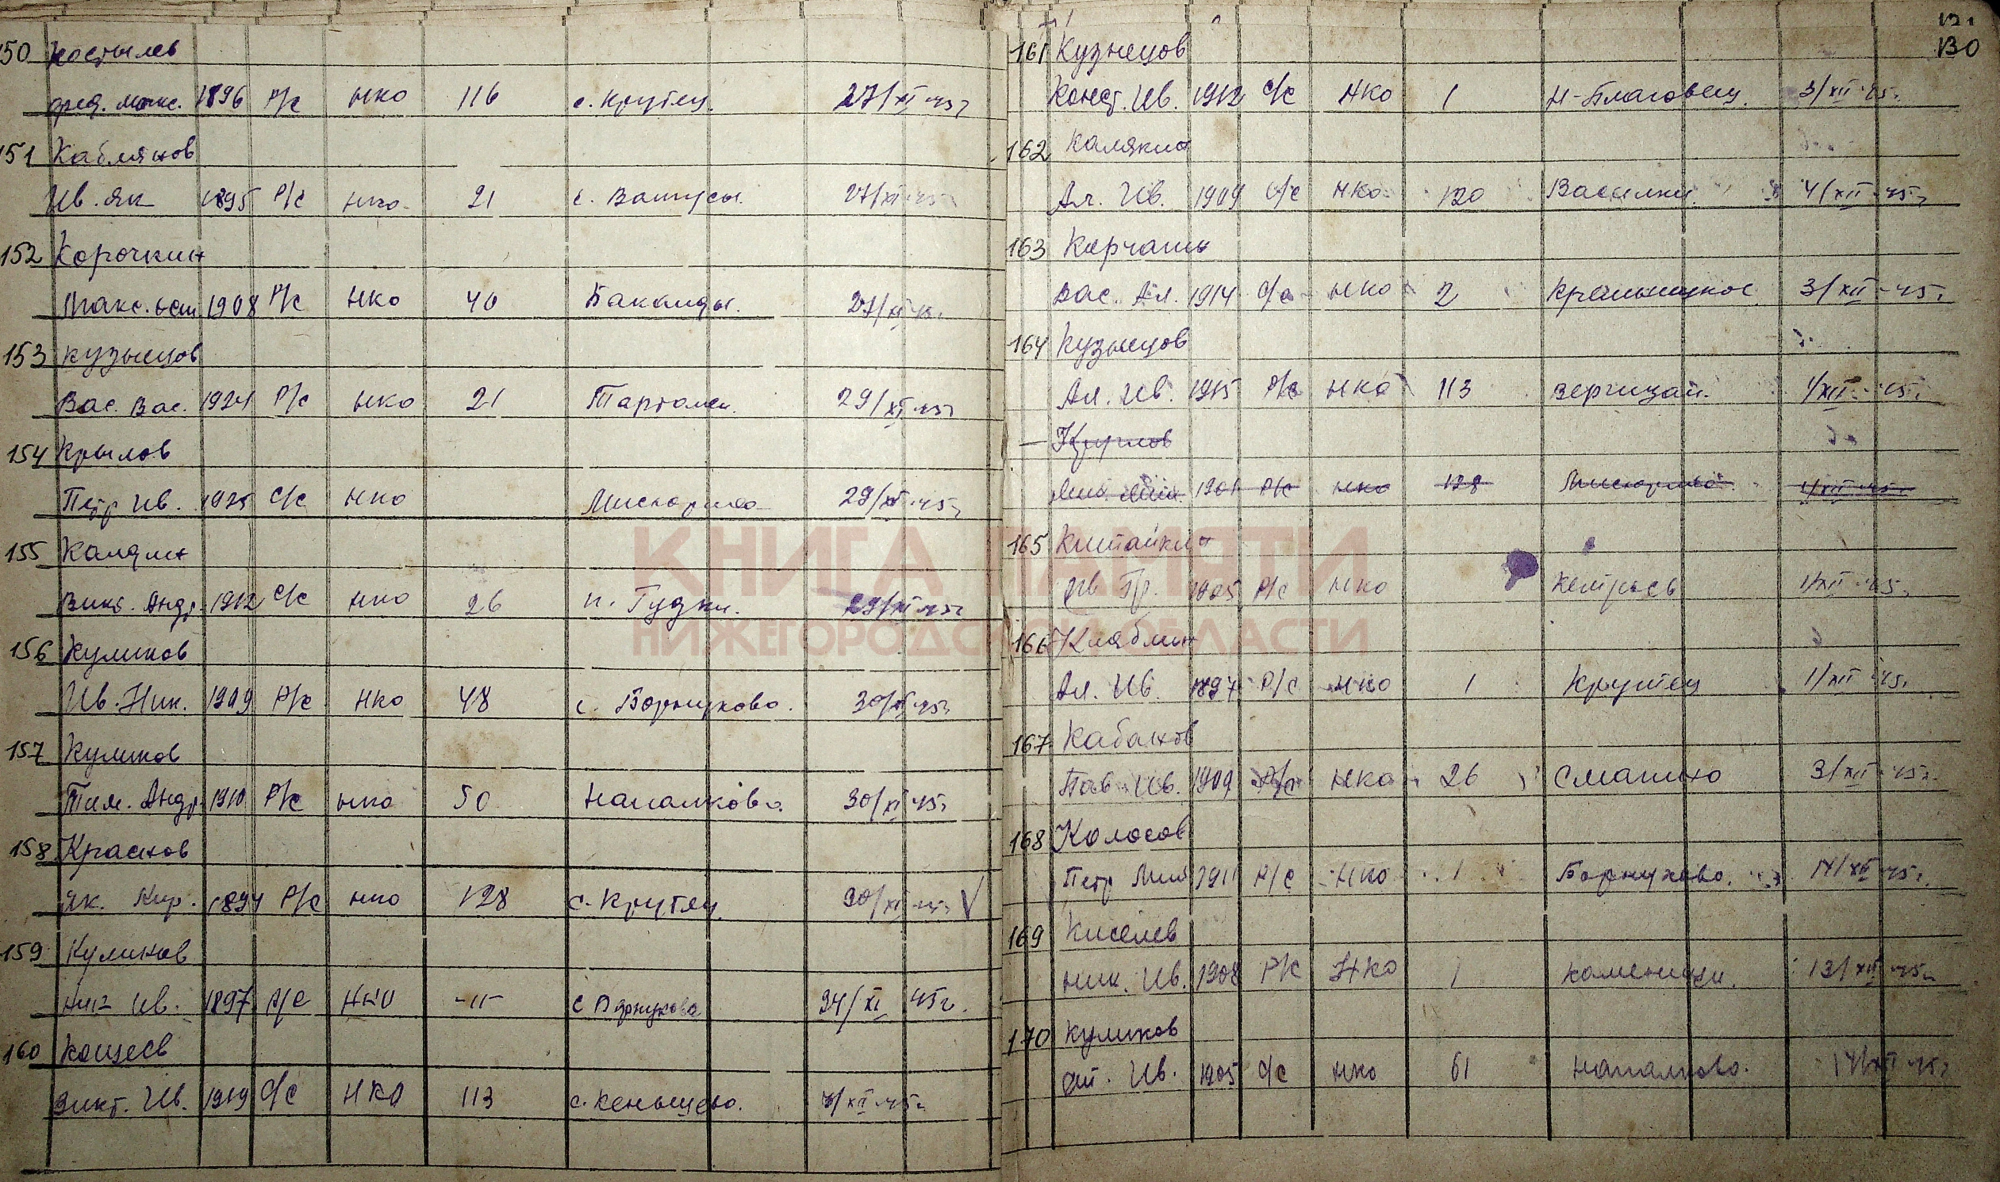 150 Костылев
Фед. Макс. 1896 р/с НКО 116 с. Крутец. 27/XI-45г
151 Кабляков
Ив. Як 1895 р/с НКО 21 с. 27/XI-45г
152 Корочкин
Макс. 1908 р/с НКО 40 Бакалды. 27/XI-45г
153 Кузнецов
Вас. Вас. 1924 р/с НКО 21 29/XI-45г
154 Крылов
Петр Ив. 1925 с/с НКО 29/XI-45г
155 Калдин
Викт. Андр. 1912 с/с НКО 26 29/XI-45г
156 Куликов
Ив. Ник. 1909 р/с НКО 48 с. Борнуково. 30/XI-45г
157 Куликов
Тим. Андр. 1910 р/с НКО 50 Напалково. 30/XI-45г
158 Краснов
Як. Кир. р/с НКО 128 с. Крутец. 30/XI-45г V
159 Куликов
Ив. 1897 р/с НКО -"- с Борнуково XI 45г.
160 Кощеев
Викт. Ив. 1919 с/с НКО 113 XII-45г
130
161 Кузнецов
Конст. Ив. 1912 с/с НКО 1 Н-Благовещ. 3/XII-45г.
162 Калякин
Ал. Ив. 1909 с/с НКО 120 4/XII-45г
163 Корчагин
Вас. Ал. 1914 с/с НКО 2 3/XII-45г.
164 Кузнецов
Ал. Ив. 1915 р/с НКО 113 Вергизай. 4/XII-45г.
— Круглов
1901 р/с НКО 128 4/XII-45г.
165 Китайкин
Ив Гр. 1905 р/с НКО 1/XII-45г.
КНИГА ПАМЯТИ
НИЖЕГОРОДСКОЙ ОБЛАСТИ
166 Киябкин
Ал. Ив. 1897 р/с НКО 1 Крутец 1/XII-45г.
167 Кабанов
Пав. Ив. 1909 р/с НКО 26 Смагино 3/XII-45г.
168 Колосов
Петр Мих 1911 р/с НКО 1 Борнуково. XII-45г.
169 Киселев
Ник. Ив. 1908 р/с НКО 1 Каменищи. 13/XII-45г
170 Куликов
Ив. 1905 с/с НКО 61 Напалково. 45г